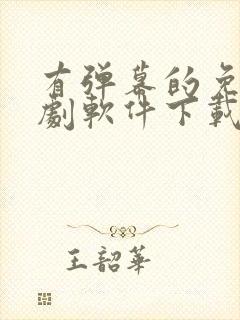 有弹幕的免
劇軟件下載
王韶華